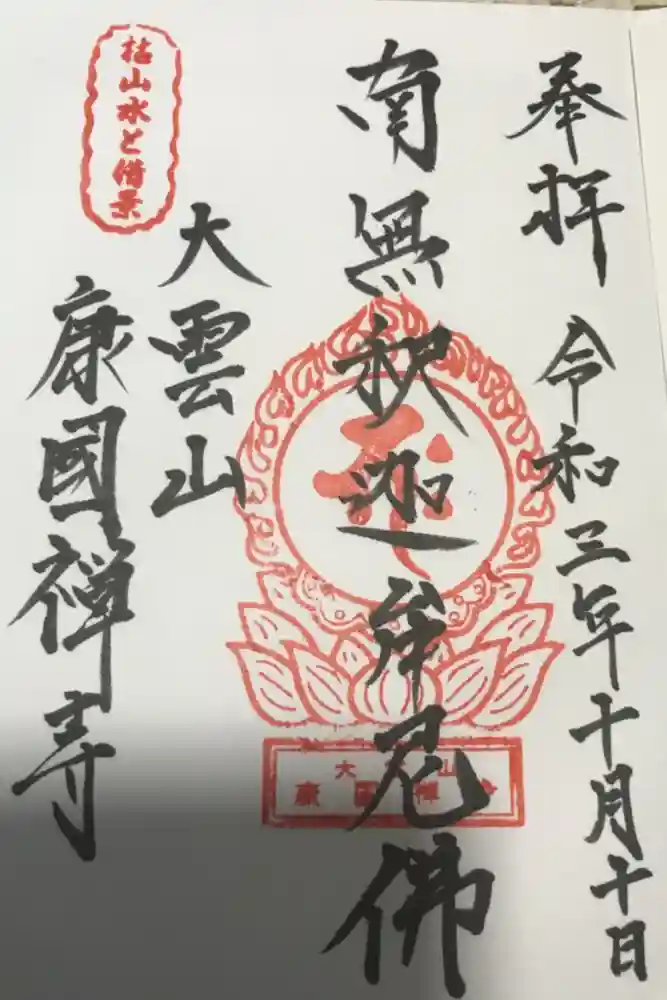 奉拝 令和三年十月十日
南無釈迦牟尼佛
大雲山
康國禅寺
枯山水と借景
大雲山
康國禅寺